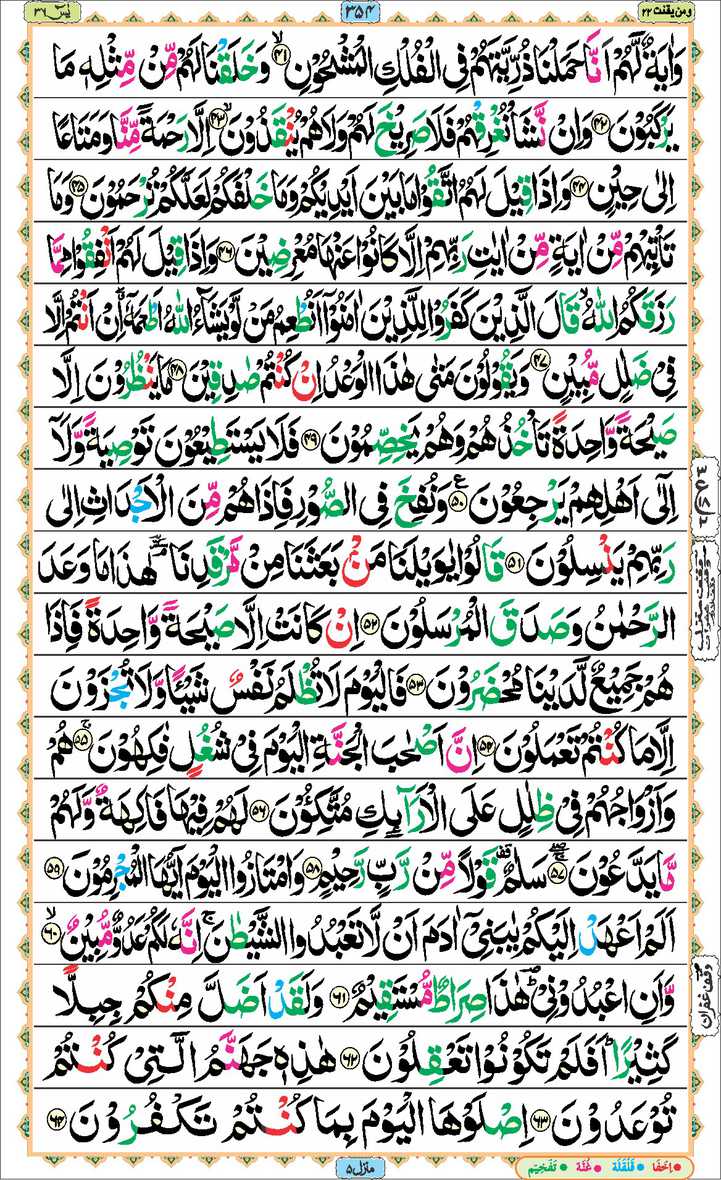 ومن یقنت ۲۲
۳۵۴
یٰسٓ ۳۶
وَاٰيَةٌ لَّهُمْ اَنَّا حَمَلْنَا ذُرِّيَّتَهُمْ فِى الْفُلْكِ الْمَشْحُوْنِ ۙ﴿۴۱﴾ وَخَلَقْنَا لَهُمْ مِّنْ مِّثْلِهٖ مَا
يَرْكَبُوْنَ ﴿۴۲﴾ وَاِنْ نَّشَاْ نُغْرِقْهُمْ فَلَا صَرِيْخَ لَهُمْ وَلَا هُمْ يُنْقَذُوْنَ ۙ﴿۴۳﴾ اِلَّا رَحْمَةً مِّنَّا وَمَتَاعًا
اِلٰى حِيْنٍ ﴿۴۴﴾ وَاِذَا قِيْلَ لَهُمُ اتَّقُوْا مَا بَيْنَ اَيْدِيْكُمْ وَمَا خَلْفَكُمْ لَعَلَّكُمْ تُرْحَمُوْنَ ﴿۴۵﴾ وَمَا
تَاْتِيْهِمْ مِّنْ اٰيَةٍ مِّنْ اٰيٰتِ رَبِّهِمْ اِلَّا كَانُوْا عَنْهَا مُعْرِضِيْنَ ﴿۴۶﴾ وَاِذَا قِيْلَ لَهُمْ اَنْفِقُوْا مِمَّا
رَزَقَكُمُ اللّٰهُ ۙ قَالَ الَّذِيْنَ كَفَرُوْا لِلَّذِيْنَ اٰمَنُوْۤا اَنُطْعِمُ مَنْ لَّوْ يَشَآءُ اللّٰهُ اَطْعَمَهٗۤ ۖ اِنْ اَنْتُمْ اِلَّا
فِىْ ضَلٰلٍ مُّبِيْنٍ ﴿۴۷﴾ وَيَقُوْلُوْنَ مَتٰى هٰذَا الْوَعْدُ اِنْ كُنْتُمْ صٰدِقِيْنَ ﴿۴۸﴾ مَا يَنْظُرُوْنَ اِلَّا
صَيْحَةً وَّاحِدَةً تَاْخُذُهُمْ وَهُمْ يَخِصِّمُوْنَ ﴿۴۹﴾ فَلَا يَسْتَطِيْعُوْنَ تَوْصِيَةً وَّلَاۤ
اِلٰٓى اَهْلِهِمْ يَرْجِعُوْنَ ﴿۵۰﴾ وَنُفِخَ فِى الصُّوْرِ فَاِذَا هُمْ مِّنَ الْاَجْدَاثِ اِلٰى
رَبِّهِمْ يَنْسِلُوْنَ ﴿۵۱﴾ قَالُوْا يٰوَيْلَنَا مَنْۢ بَعَثَنَا مِنْ مَّرْقَدِنَا ۘ هٰذَا مَا وَعَدَ
الرَّحْمٰنُ وَصَدَقَ الْمُرْسَلُوْنَ ﴿۵۲﴾ اِنْ كَانَتْ اِلَّا صَيْحَةً وَّاحِدَةً فَاِذَا
هُمْ جَمِيْعٌ لَّدَيْنَا مُحْضَرُوْنَ ﴿۵۳﴾ فَالْيَوْمَ لَا تُظْلَمُ نَفْسٌ شَيْـًٔا وَّلَا تُجْزَوْنَ
اِلَّا مَا كُنْتُمْ تَعْمَلُوْنَ ﴿۵۴﴾ اِنَّ اَصْحٰبَ الْجَنَّةِ الْيَوْمَ فِىْ شُغُلٍ فٰكِهُوْنَ ۚ﴿۵۵﴾ هُمْ
وَاَزْوَاجُهُمْ فِىْ ظِلٰلٍ عَلَى الْاَرَآئِكِ مُتَّكِـُٔوْنَ ﴿۵۶﴾ لَهُمْ فِيْهَا فَاكِهَةٌ وَّلَهُمْ
مَّا يَدَّعُوْنَ ۚۖ﴿۵۷﴾ سَلٰمٌ ۣ قَوْلًا مِّنْ رَّبٍّ رَّحِيْمٍ ﴿۵۸﴾ وَامْتَازُوا الْيَوْمَ اَيُّهَا الْمُجْرِمُوْنَ ﴿۵۹﴾
اَلَمْ اَعْهَدْ اِلَيْكُمْ يٰبَنِىْۤ اٰدَمَ اَنْ لَّا تَعْبُدُوا الشَّيْطٰنَ ۚ اِنَّهٗ لَكُمْ عَدُوٌّ مُّبِيْنٌ ۙ﴿۶۰﴾
وَّاَنِ اعْبُدُوْنِىْ ؔؕ هٰذَا صِرَاطٌ مُّسْتَقِيْمٌ ﴿۶۱﴾ وَلَقَدْ اَضَلَّ مِنْكُمْ جِبِلًّا
كَثِيْرًا ؕ اَفَلَمْ تَكُوْنُوْا تَعْقِلُوْنَ ﴿۶۲﴾ هٰذِهٖ جَهَنَّمُ الَّتِىْ كُنْتُمْ
تُوْعَدُوْنَ ﴿۶۳﴾ اِصْلَوْهَا الْيَوْمَ بِمَا كُنْتُمْ تَكْفُرُوْنَ ﴿۶۴﴾
وقف غفران
منزل ۵
• اِخفَا • قَلْقَلَة • غُنَّة • تَفْخِيْم